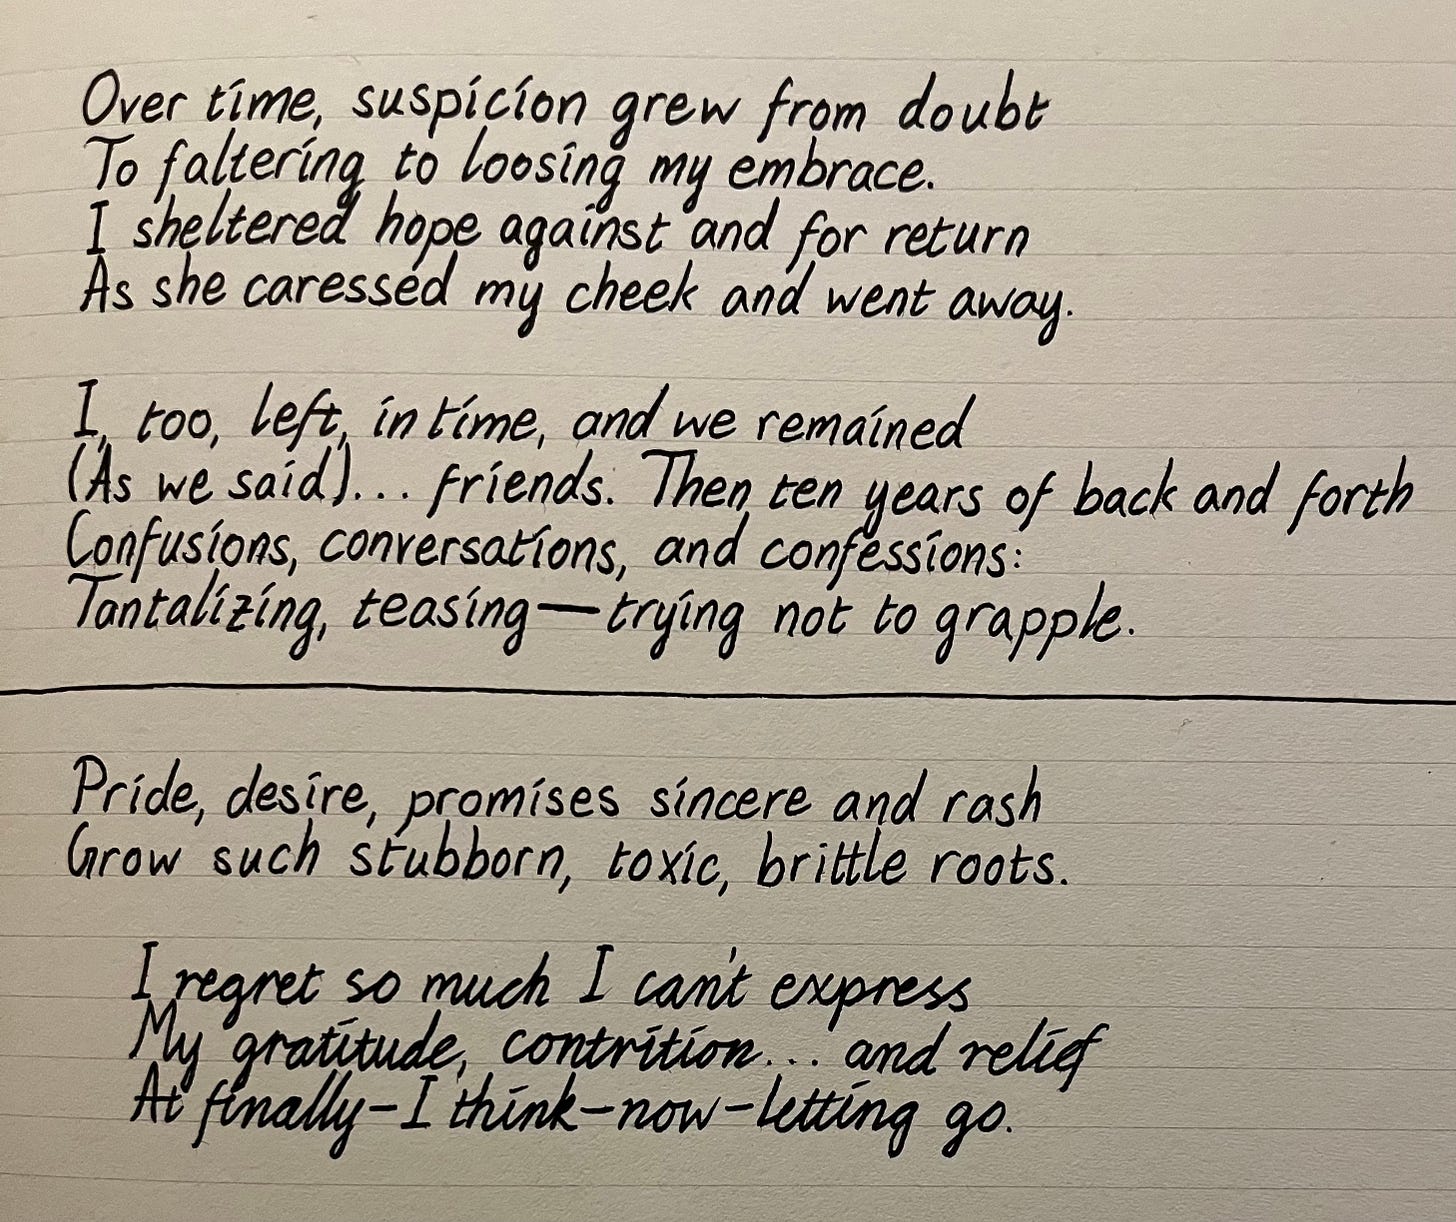 Over time, suspicion grew from doubt
To faltering to loosing my embrace.
I sheltered hope against and for return
As she caressed my cheek and went away.
I, too, left, in time, and we remained
(As we said)... friends. Then ten years of back and forth
Confusions, conversations, and confessions:
Tantalizing, teasing—trying not to grapple.
Pride, desire, promises sincere and rash
Grow such stubborn, toxic, brittle roots.
I regret so much I can't express
My gratitude, contrition... and relief
At finally–I think–now–letting go.